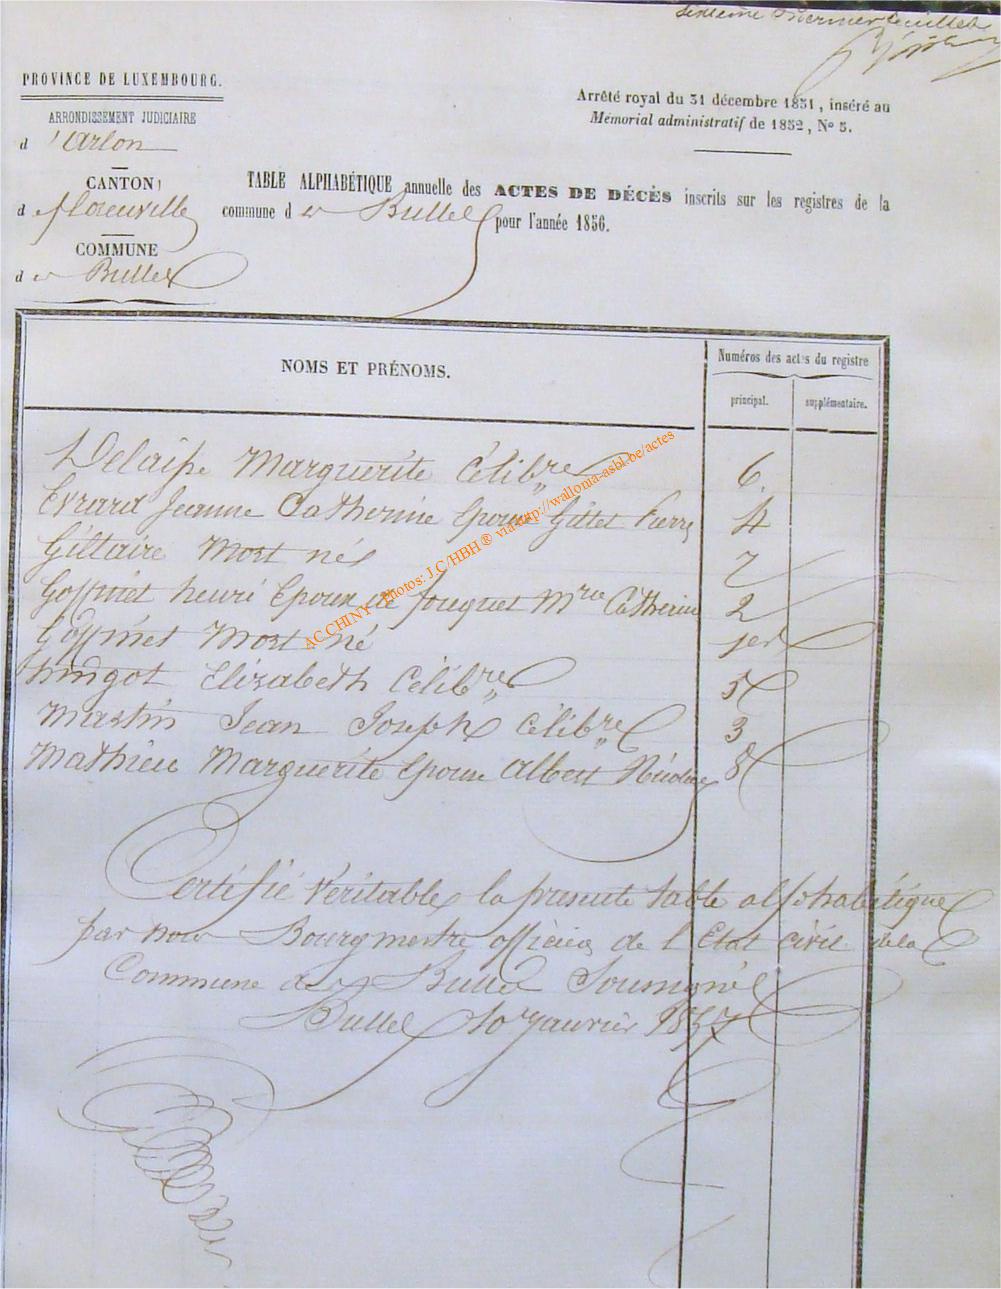 sixième & dernier feuillet
PROVINCE DE LUXEMBOURG.
ARRONDISSEMENT JUDICIAIRE
d 'Arlon
CANTON
d e florenville
COMMUNE
d e Bullex
Arrêté royal du 31 décembre 1831, inséré au
Mémorial administratif de 1832, Nº 5.
TABLE ALPHABÉTIQUE annuelle des ACTES DE DÉCÈS inscrits sur les registres de la
commune d e Bullex pour l'année 1856.
NOMS ET PRÉNOMS.
Numéros des actes du registre
principal.
supplémentaire.
Marguerite Célibre 6.
Evrard Jeanne Catherine Epouse Gillet Pierre 4
Giltaire Mort né 7
Goffinet henri Epoux de fouquet Mrie Catherine 2
Goffinet Mort né 1er
hingot Elizabeth Célibre 5
Martin Jean Joseph Célibre 3
Mathieu Marguerite Epouse Albert Nicolas 8
Certifié Véritable la présente table alphabétique
par nous Bourgmestre officier de l'Etat civil de la
Commune de Bullex Soussigné
Bullex 10 Janvier 1857
AC CHINY - Photos: J.C/HBH ® via http://wallonia-asbl.be/actes